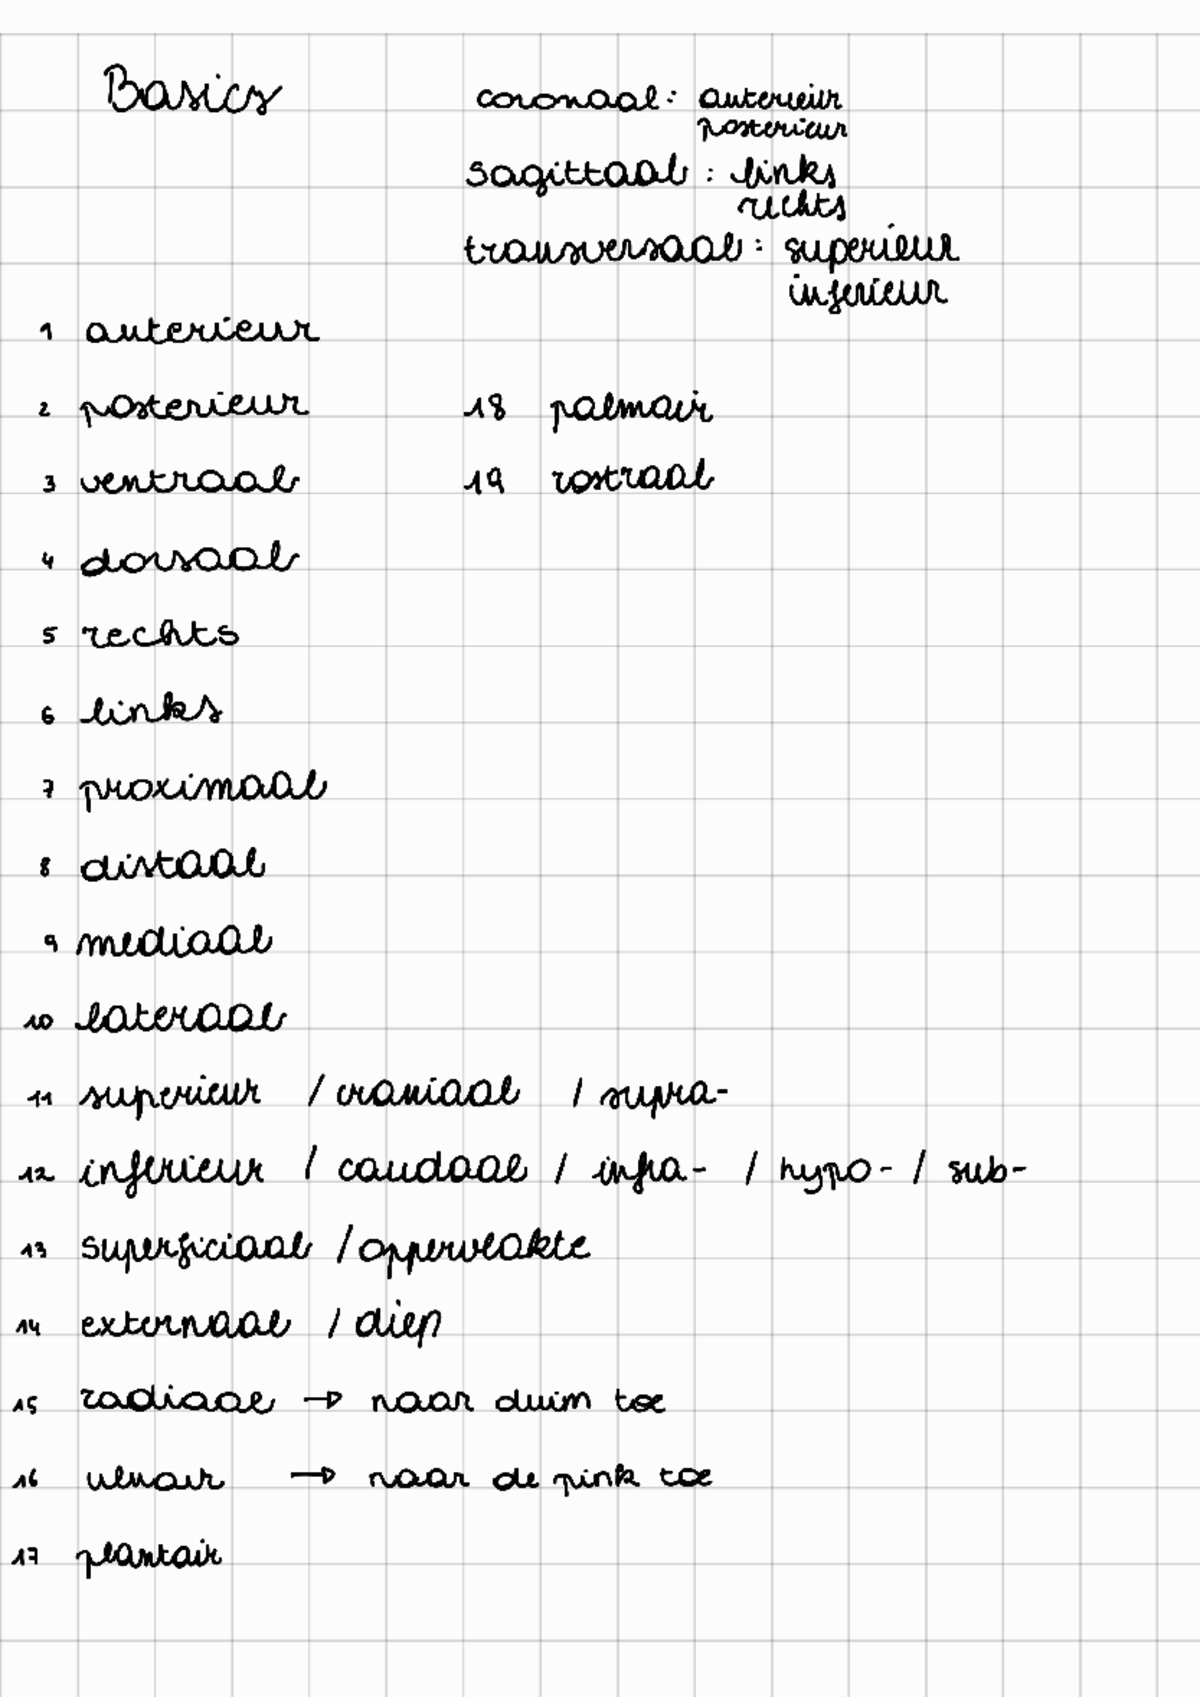 Basics
coronaal: anterieur
posterieur
sagittaal: links
rechts
transversaal: superieur
inferieur
1 anterieur
2 posterieur
3 ventraal
4 dorsaal
5 rechts
6 links
7 proximaal
8 distaal
9 mediaal
10 lateraal
11 superieur / craniaal / supra-
12 inferieur / caudaal / infra- / hypo- / sub-
13 superficiaal / oppervlakte
14 externaal / diep
15 radiaal → naar duim toe
16 ulnair → naar de pink toe
17 plantair
18 palmair
19 rostraal